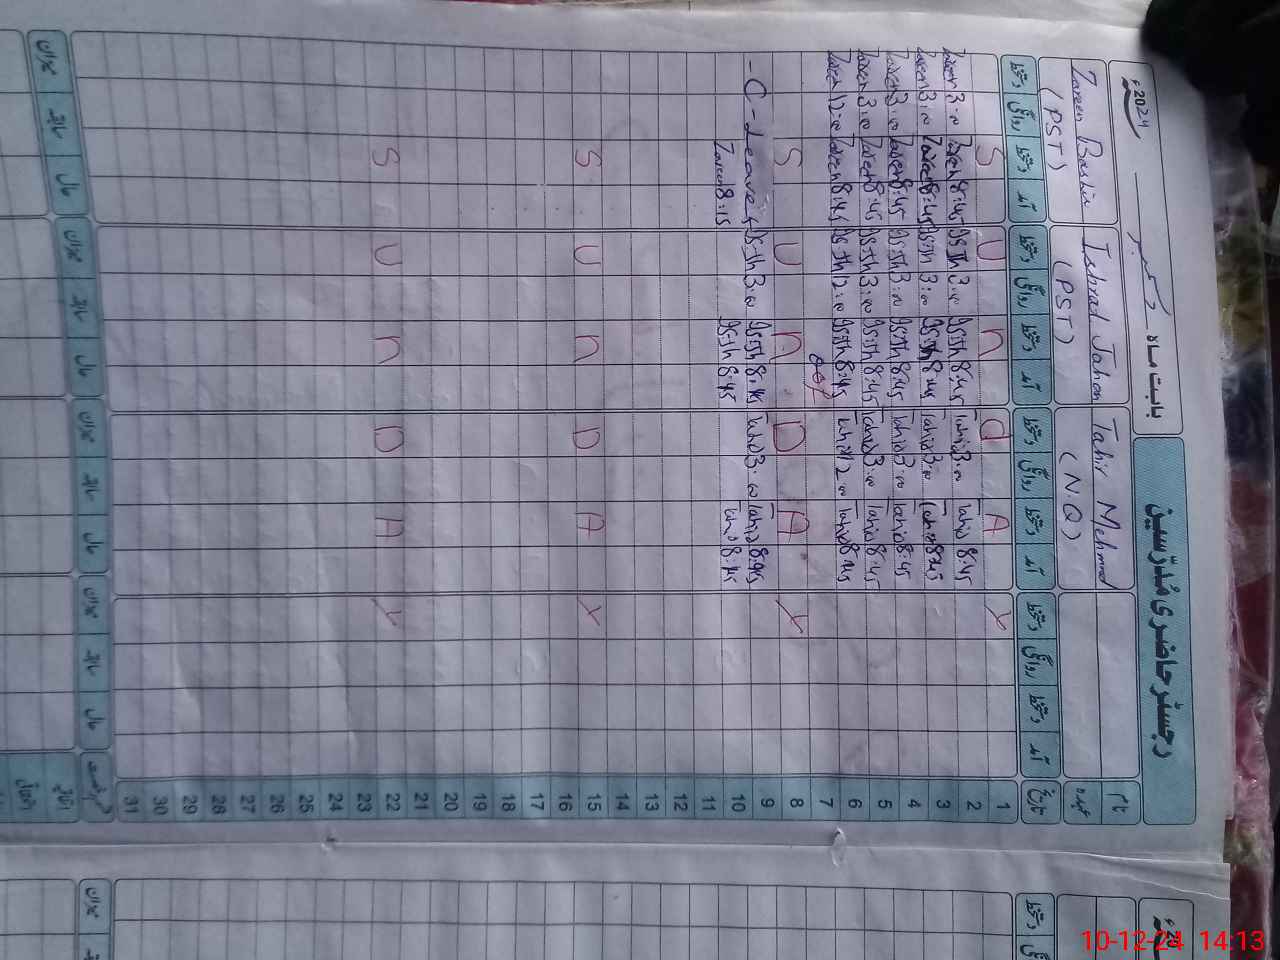 رجسٹر حاضری مُدرّسین بابت ماہ دسمبر 2024ء
نام Tahir Mehmood Ishrad Jahan Zareen Bashir
عہدہ (N.Q) (PST) (PST)
تاریخ آمد دستخط روانگی دستخط آمد دستخط روانگی دستخط آمد دستخط روانگی دستخط آمد دستخط روانگی دستخط
1 Y A d n U S
2 Tahir 8:45 Tahir 3:00 Isth 8:45 Isth 3:00 Zareen 8:45 Zareen 3:00
3 Tahir 8:45 Tahir 3:00 Isth 8:45 Isth 3:00 Zareen 8:45 Zareen 3:00
4 Tahir 8:45 Tahir 3:00 Isth 8:45 Isth 3:00 Zareen 8:45 Zareen 3:00
5 Tahir 8:45 Tahir 3:00 Isth 8:45 Isth 3:00 Zareen 8:45 Zareen 3:00
6 Tahir 8:45 Tahir 12:00 Isth 8:45 Isth 12:00 Zareen 8:45 Zareen 12:00
7
8 Y A D n U S
9 Tahir 8:45 Tahir 3:00 Isth 8:45 Isth 3:00 -C-Leave
10 Tahir 8:45 Isth 8:45 Zareen 8:15
11
12
13
14
15 Y A D n U S
16
17
18
19
20
21
22 Y A D n U S
23
24
25
26
27
28
29
30
31
حال سابقہ میزان حال سابقہ میزان حال سابقہ میزان حال سابقہ میزان
اتفاقی
دستخط
میزان
10-12-24 14:13